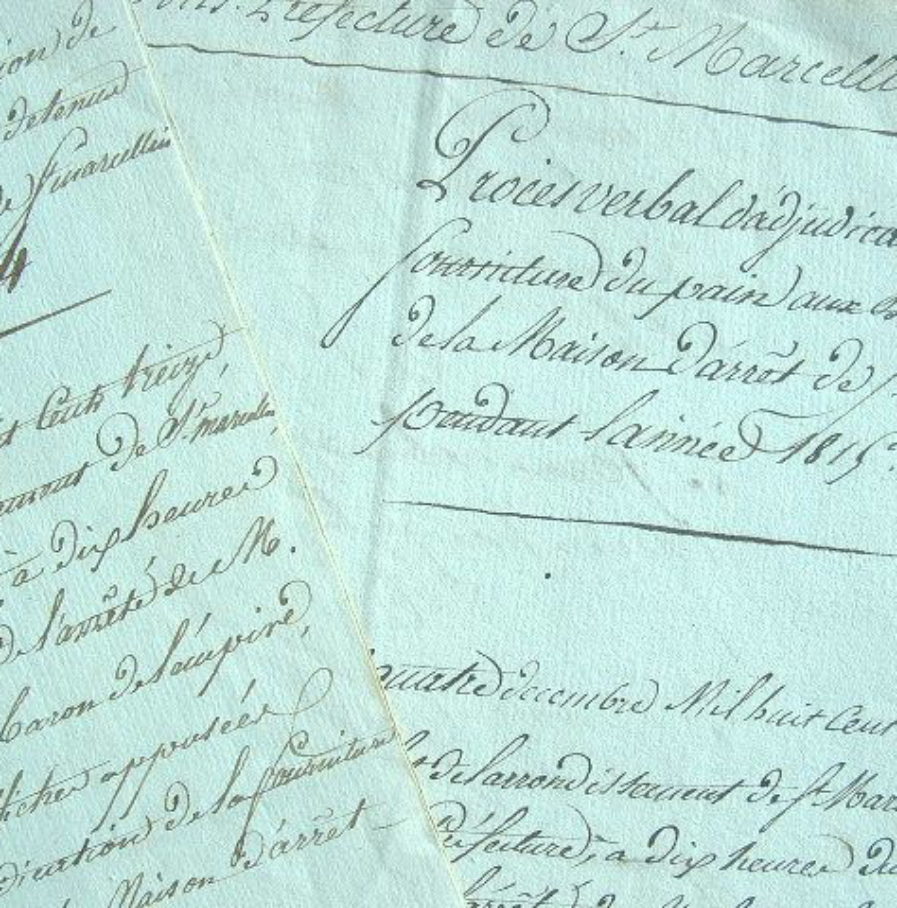 ion de
detenus
de St marcellin
4
t Cents treize,
de St. marcellin
à dix heures
de l'arrêté de M.
baron de l'empire,
apposées
dication de la fourniture
Maison d'arret
Préfecture de St. Marcelli
Procès verbal d'adjudica
fourniture du pain aux
de la Maison d'arrêt de S.
pendant l'année 1815.
quatre decembre Mil huit Cent
de l'arrondissement de St Mar
Préfecture, a dix heures du